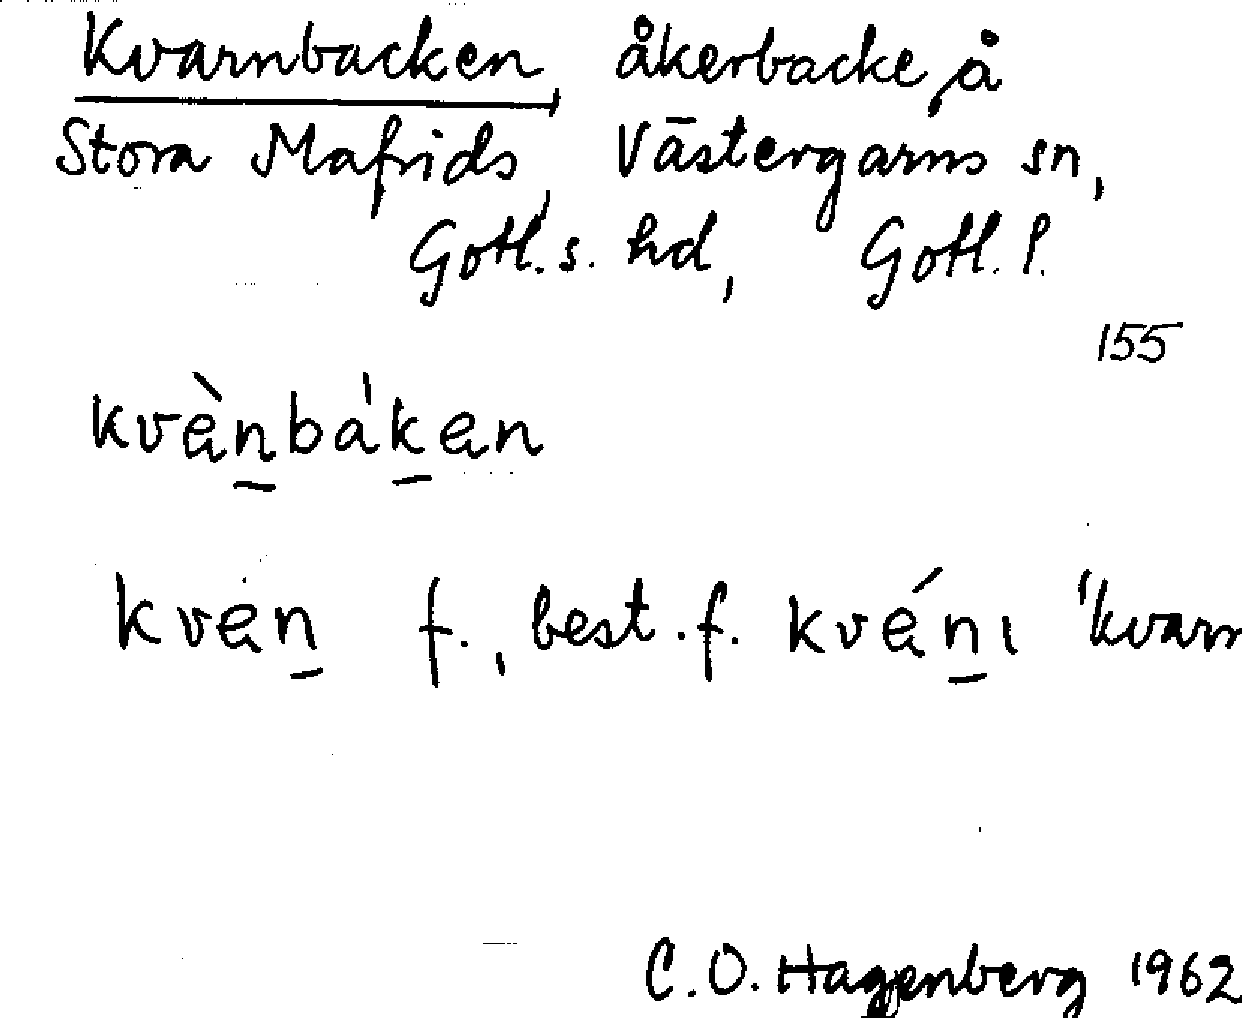 Kvarnbacken, åkerbacke å
Stora Mafrids, Västergarns sn,
Gotl. s. hd, Gotl. l.
155
kvὲn̠bák̠en
kvεn̠ f., best. f. kvέn̠ı 'kvarn
C. O. Hagenberg 1962